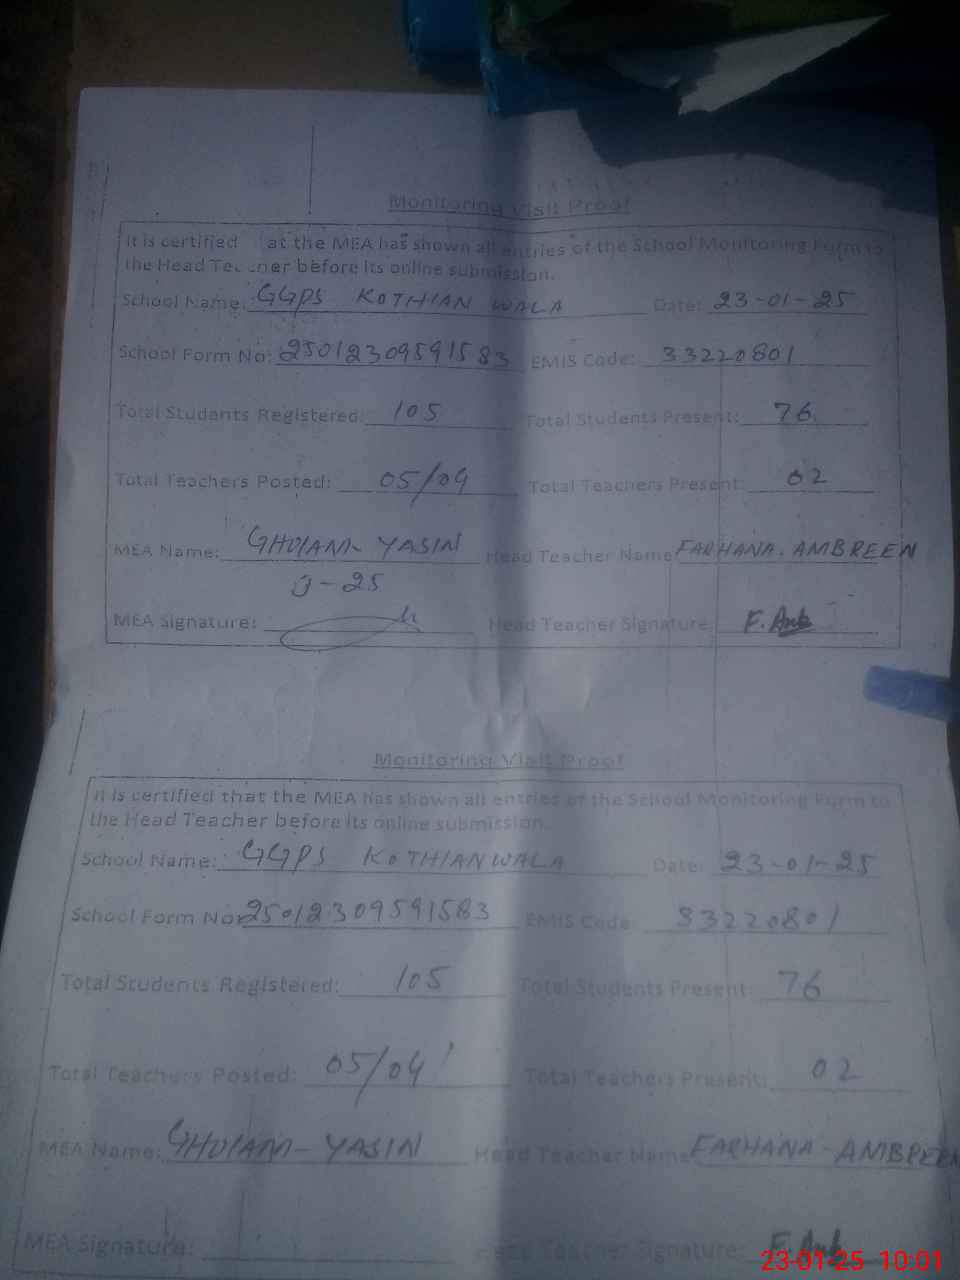 Monitoring Visit Proof
It is certified at the MEA has shown all entries of the School Monitoring Form to
the Head Teacher before its online submission.
School Name: GGPS KOTHIAN WALA Date: 23-01-25
School Form No: 250123095915 83 EMIS Code: 33220801
Total Students Registered: 105 Total Students Present: 76
Total Teachers Posted: 05/04 Total Teachers Present: 02
MEA Name: GHULAM- YASIN Head Teacher Name FARHANA. AMBREEN
J-25
MEA Signature: Head Teacher Signature: F. Amb
Monitoring Visit Proof
It is certified that the MEA has shown all entries of the School Monitoring Form to
the Head Teacher before its online submission.
School Name: GGPS KOTHIANWALA Date: 23-01-25
School Form No: 25012309591583 EMIS Code: 33220801
Total Students Registered: 105 Total Students Present: 76
Total Teachers Posted: 05/04 Total Teachers Present: 02
MEA Name: GHULAM- YASIN Head Teacher Name FARHANA - AMBREEN
MEA Signature: Head Teacher Signature: F. Amb
23-01-25 10:01